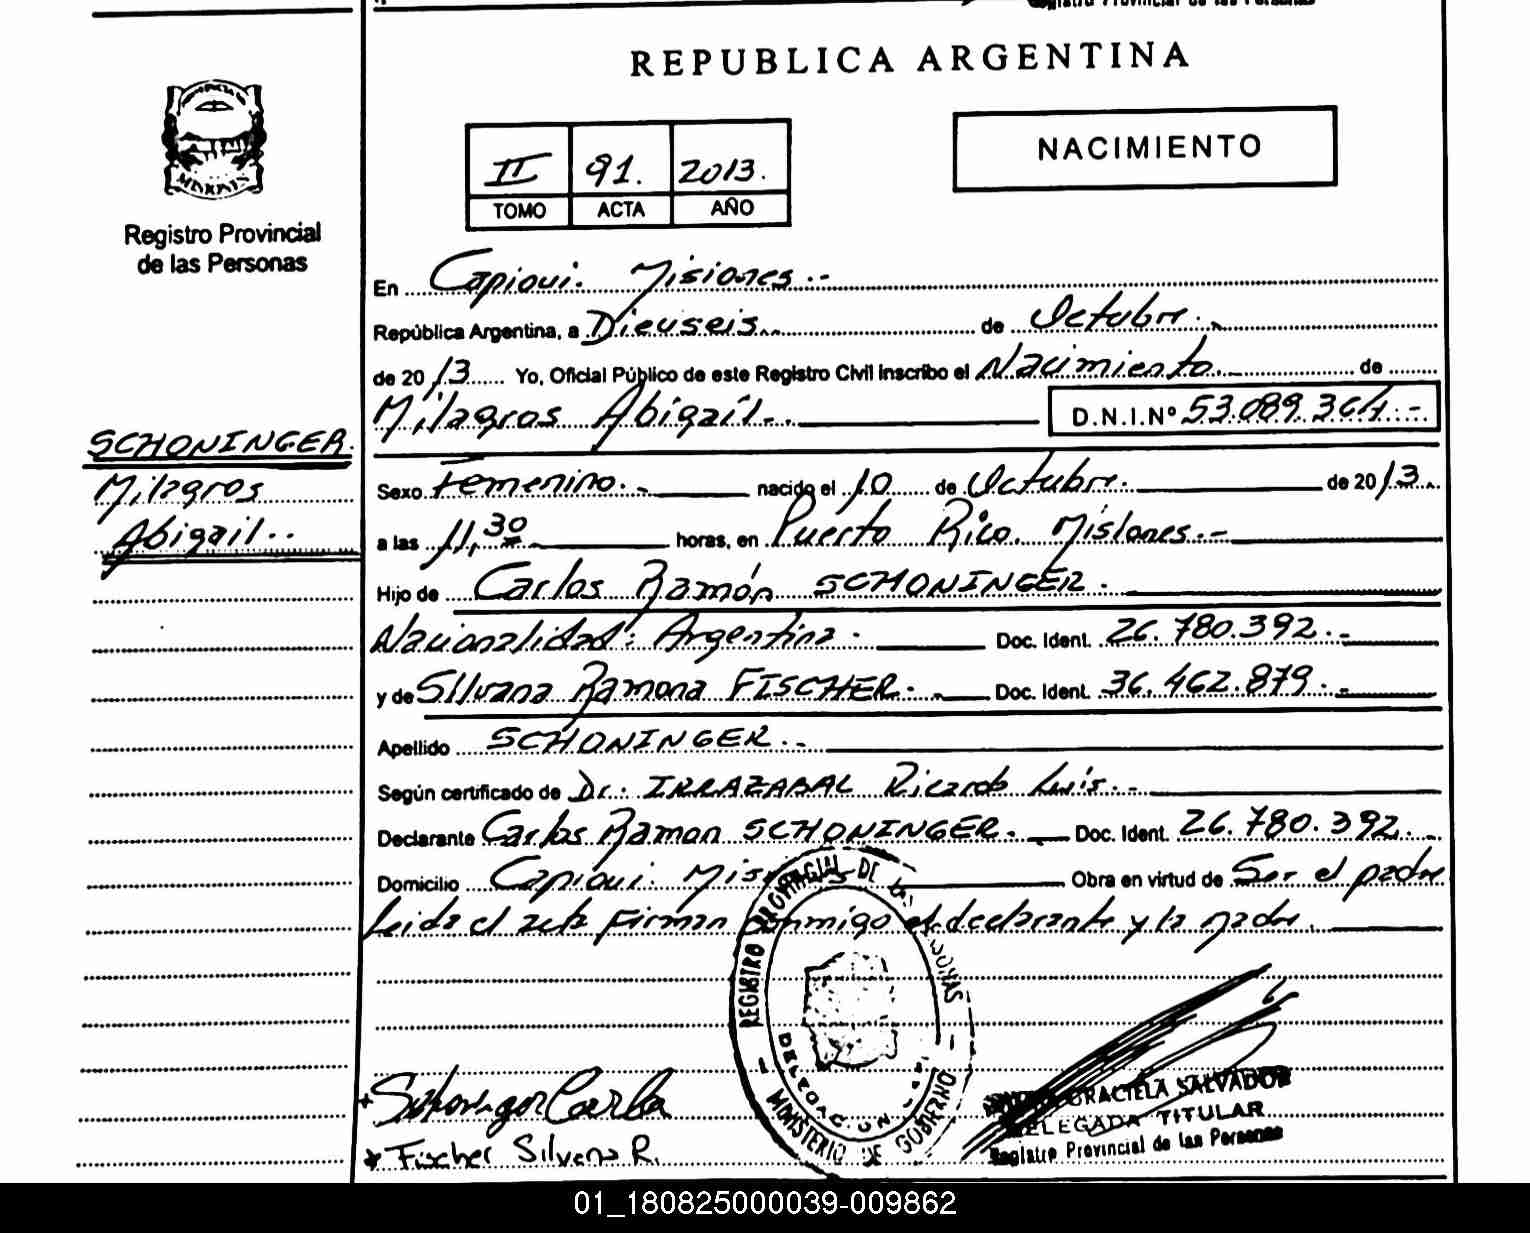 Registro Provincial de las Personas
REPUBLICA ARGENTINA
II 91. 2013.
TOMO ACTA AÑO
NACIMIENTO
MISIONES
Registro Provincial
de las Personas
SCHONINGER.
Milagros
Abigail..
En Capioui. Misiones.-
República Argentina, a Dieciseis.. de Octubre.-
de 2013 Yo, Oficial Público de este Registro Civil inscribo el Nacimiento.- de
Milagros Abigail.-. D.N.I.Nº 53.089.364.-
Sexo Femenino.- nacido el 10 de Octubre. de 2013..
a las 11,30 horas, en Puerto Rico. Misiones.-
Hijo de Carlos Ramón SCHONINGER.
Nacionalidad: Argentina. Doc. Ident. 26.780.392.-
y de Silvana Ramona FISCHER.- Doc. Ident. 36.462.879.-
Apellido SCHONINGER.-
Según certificado de Dr. IRRAZABAL Ricardo Luis.-
Declarante Carlos Ramon SCHONINGER.- Doc. Ident. 26.780.392.
Domicilio Capioui. Misiones Obra en virtud de Ser el padre
Leida el acta firman conmigo el declarante y la madre.
REGISTRO PROVINCIAL DE LAS PERSONAS
DELEGACION
MINISTERIO DE GOBIERNO
Schoninger Carlo
Fischer Silvana R.
GRACIELA SALVADOR
DELEGADA TITULAR
Registro Provincial de las Personas
01_180825000039-009862